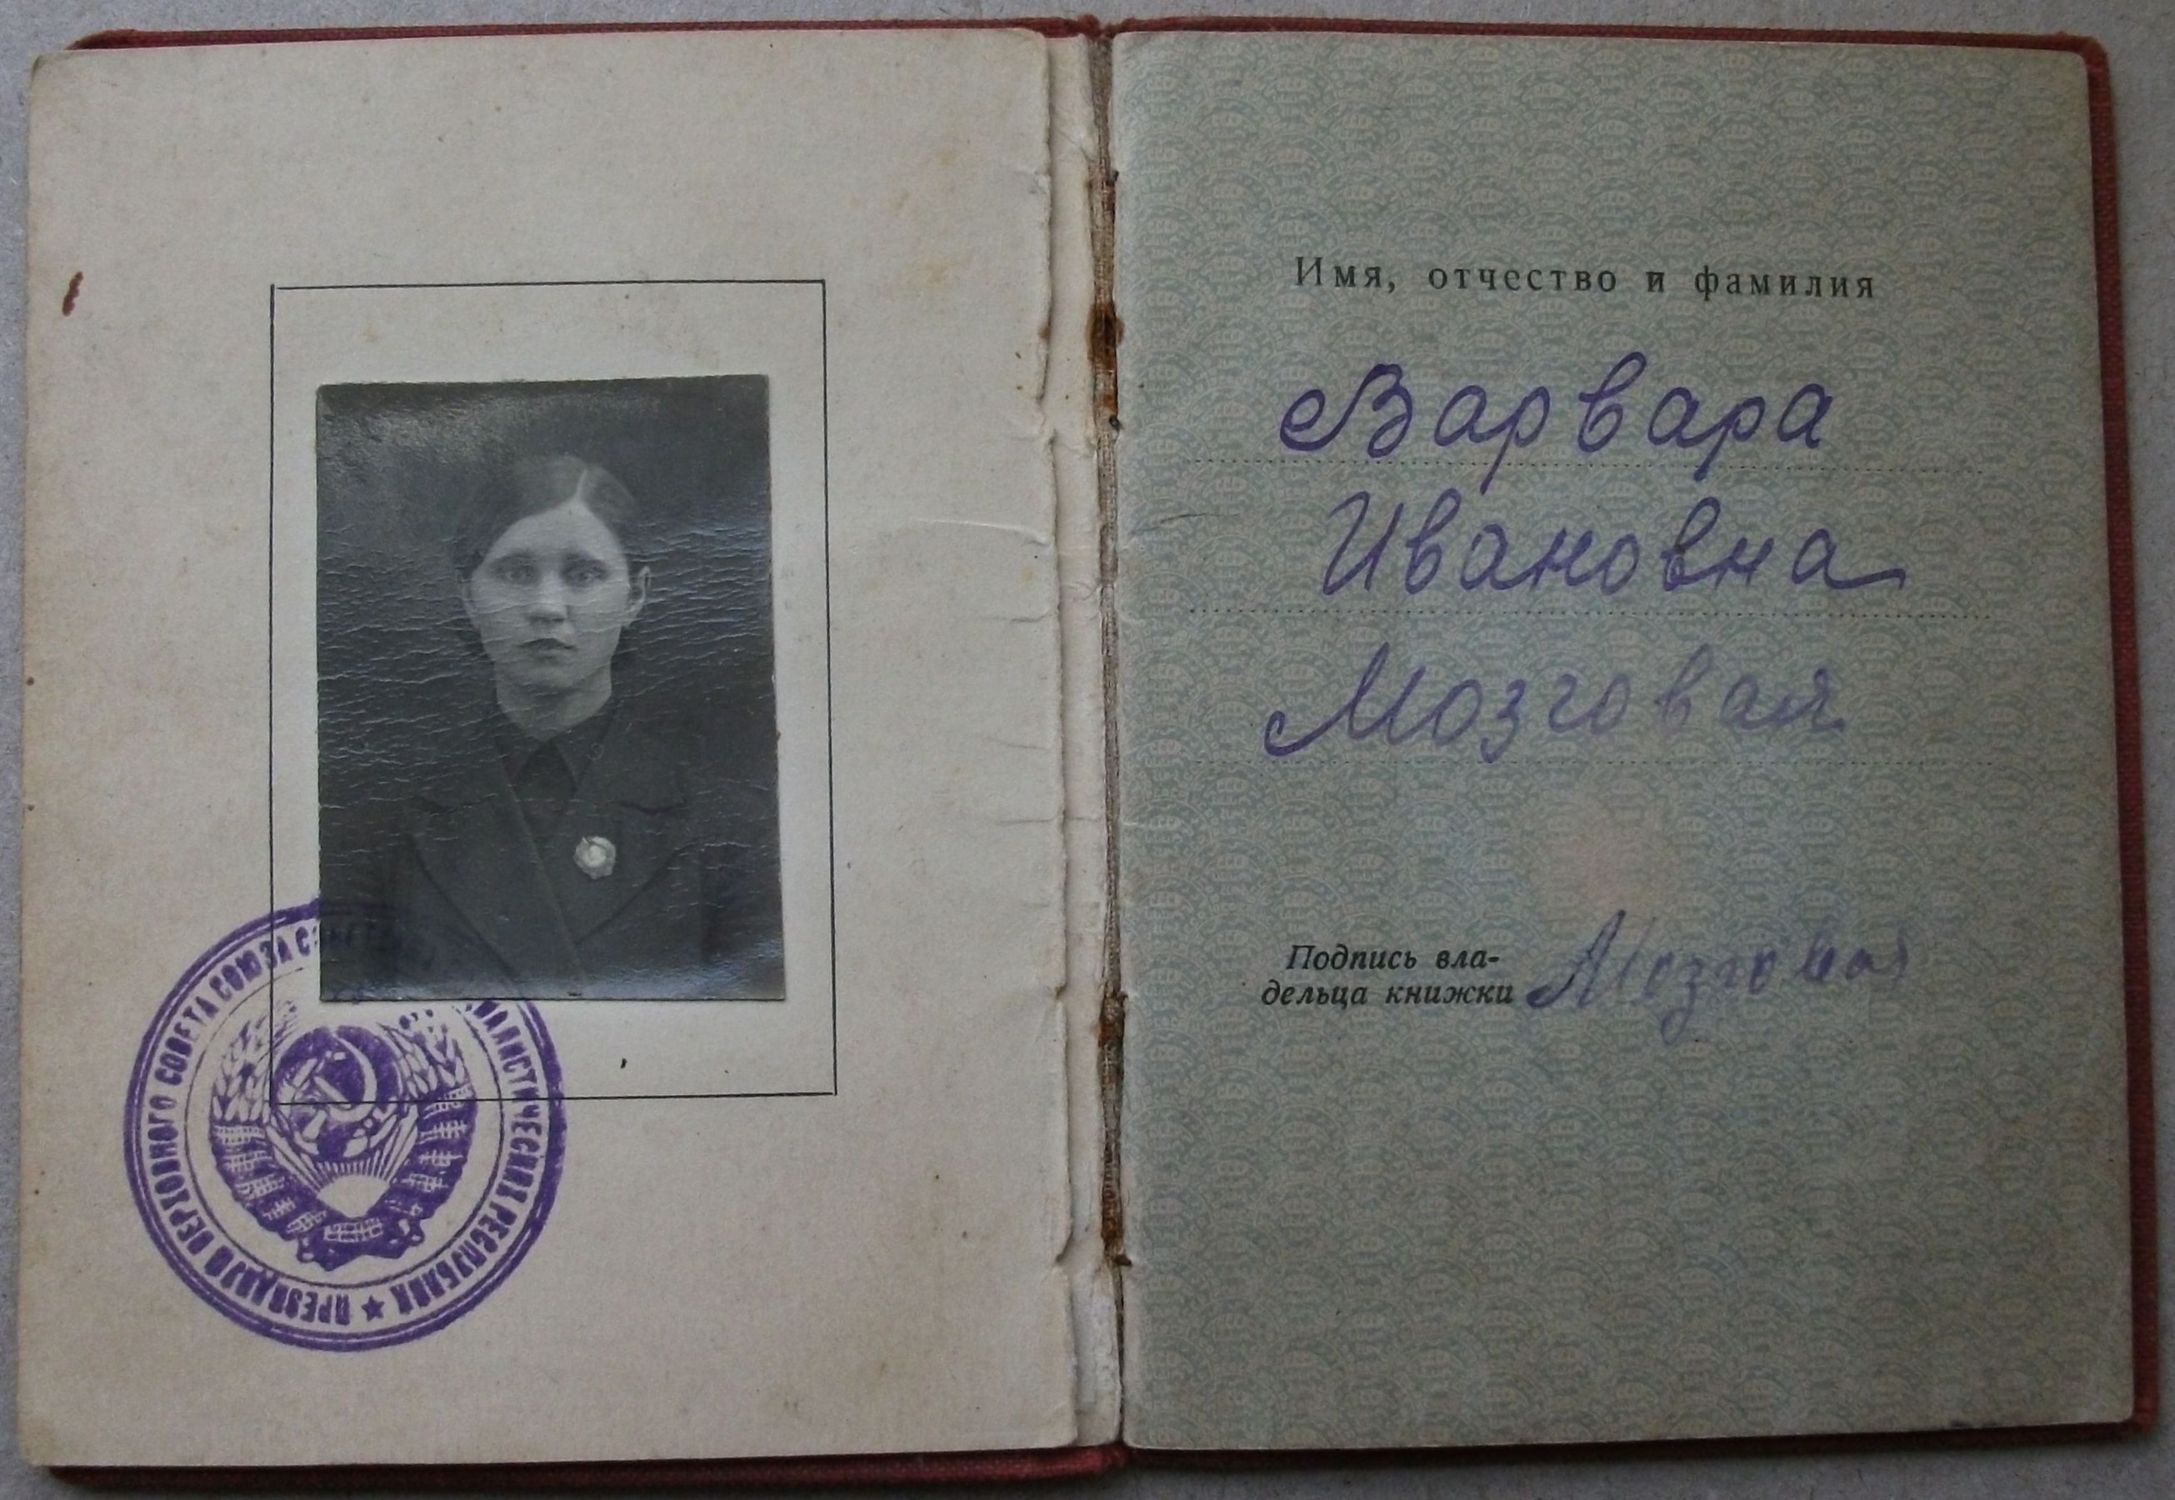 ПРЕЗИДИУМ ВЕРХОВНОГО СОВЕТА СОЮЗА СОВЕТ СОЦИАЛИСТИЧЕСКИХ РЕСПУБЛИК ★
Имя, отчество и фамилия
Варвара
Ивановна
Мозговая
Подпись вла-
дельца книжки Мозговая